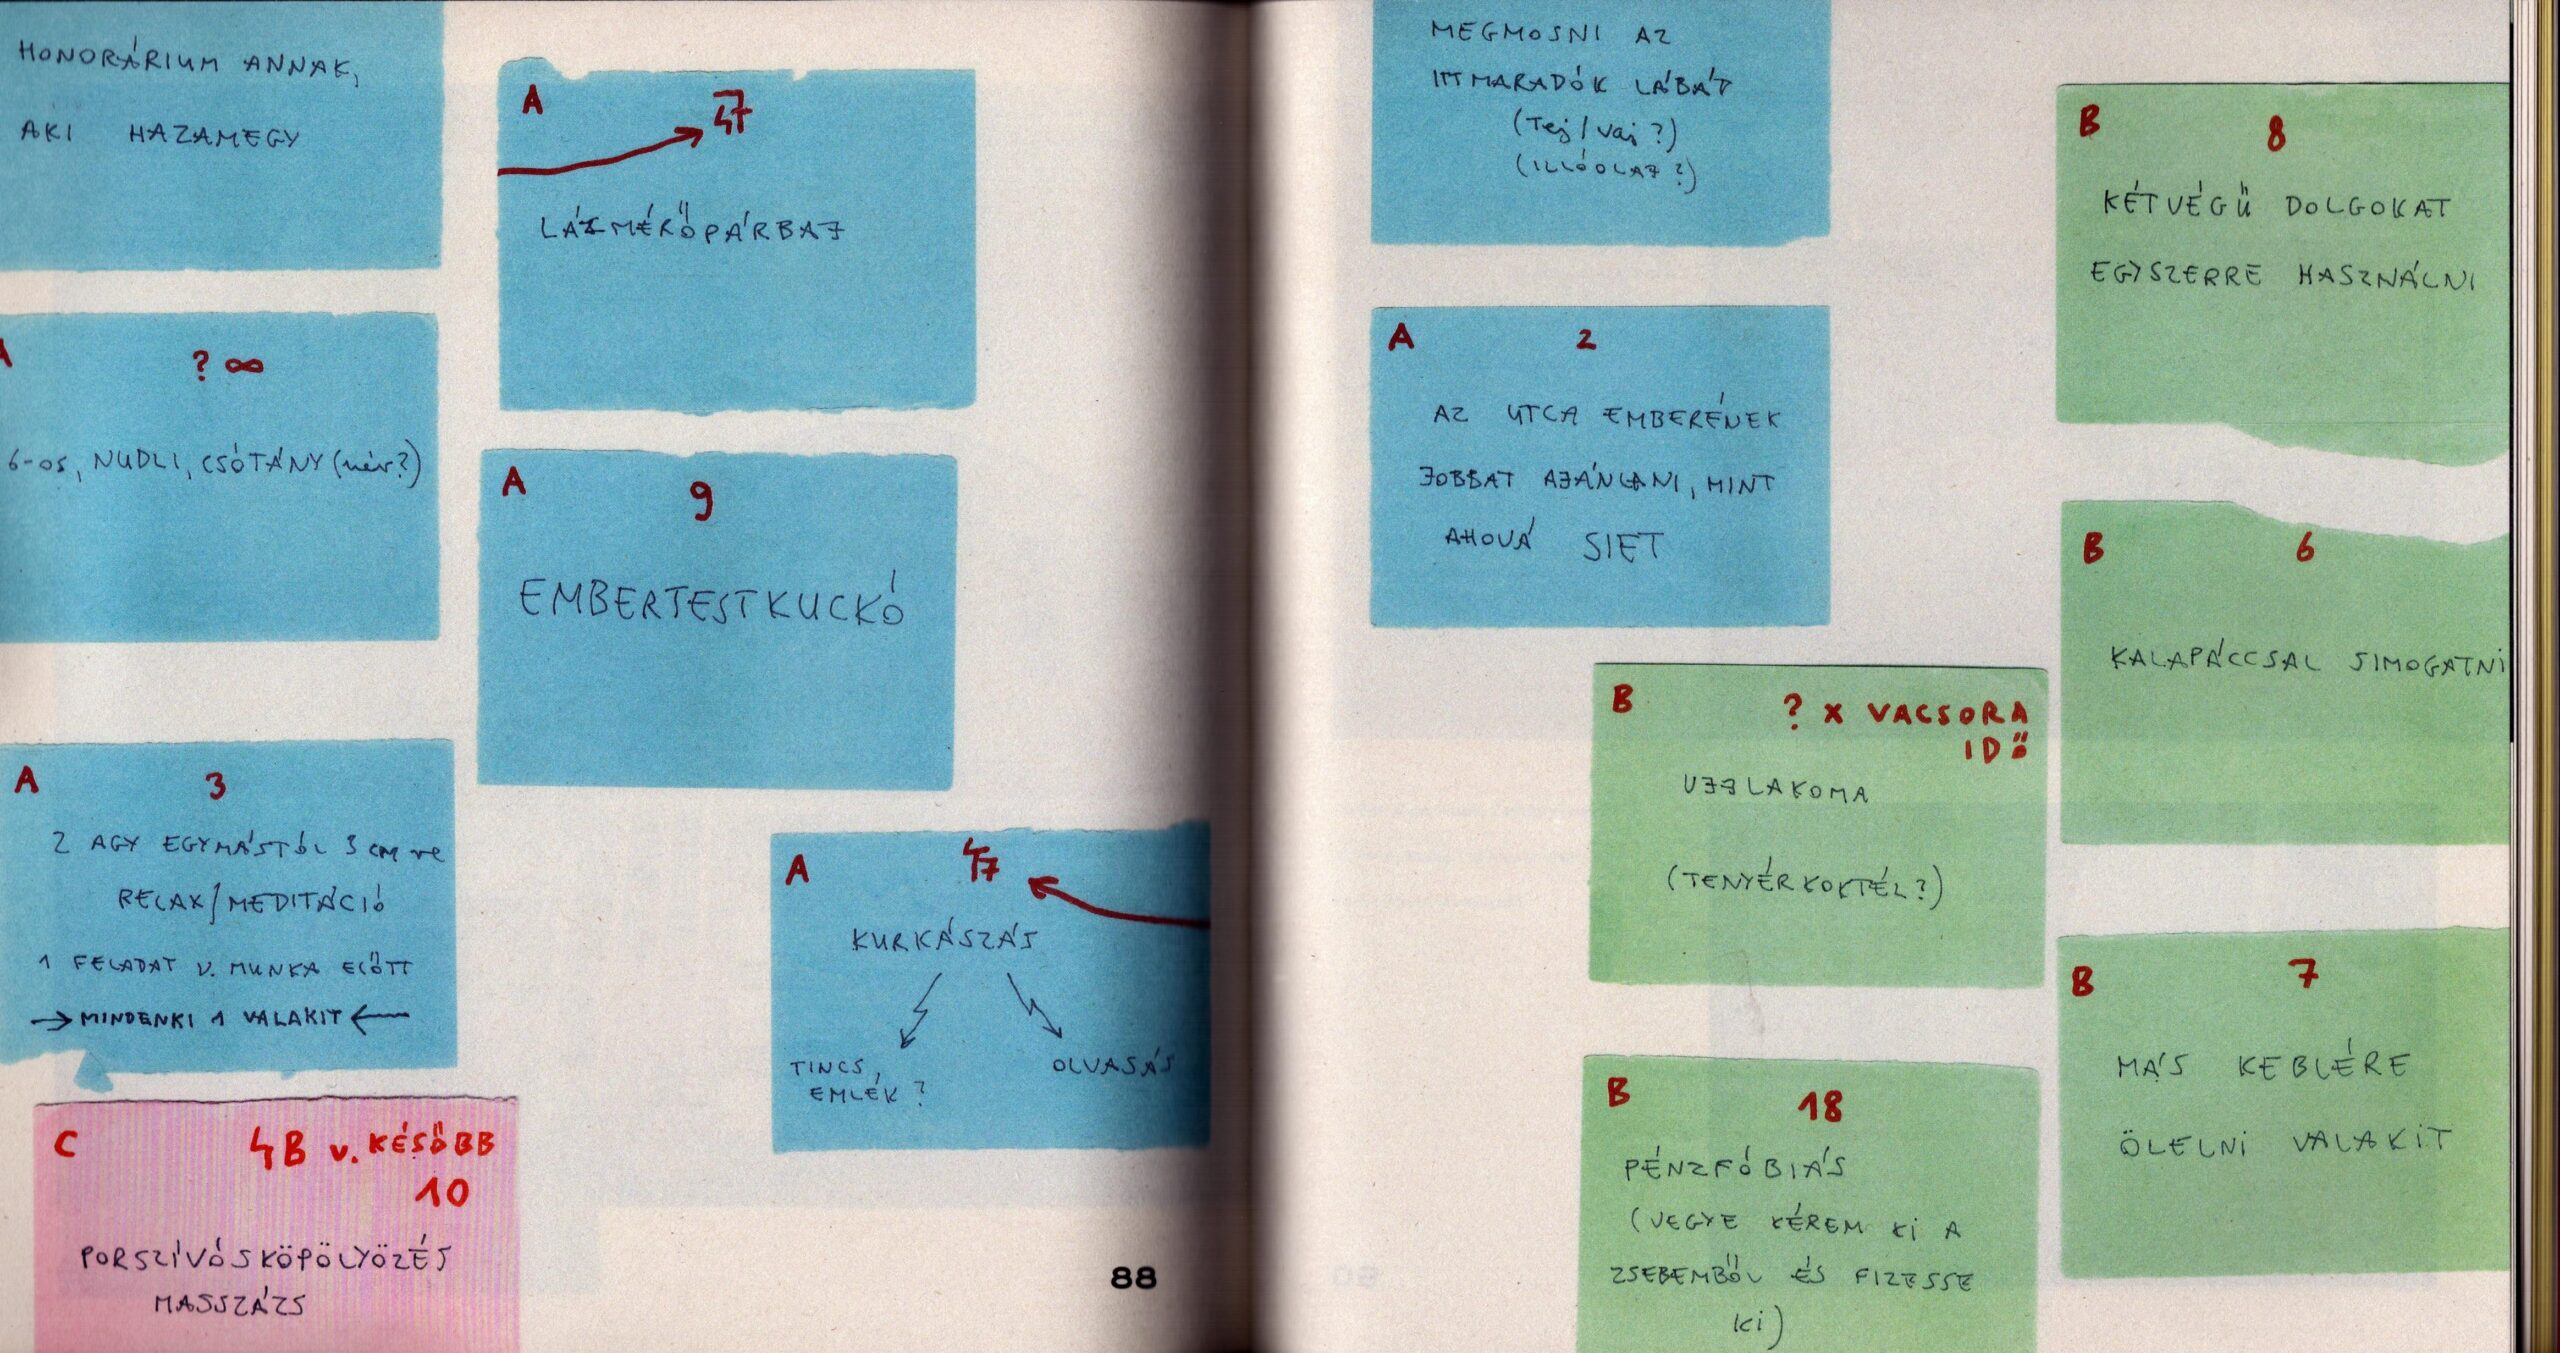 HONORÁRIUM ANNAK,
AKI HAZAMEGY
A
? ∞
6-os, NUDLI, CSÓTÁNY (név?)
A 3
2 AGY EGYMÁSTÓL 3 cm re
RELAX/MEDITÁCIÓ
1 FELADAT V. MUNKA ELŐTT
→ MINDENKI 1 VALAKIT ←
C 4B v. KÉSŐBB
10
PORSZÍVÓS KÖPÖLYÖZÉS
MASSZÁZS
A 47
LÁZMÉRŐPÁRBAJ
A 9
EMBERTESTKUCKÓ
A 47
KURKÁSZÁS
TINCS, OLVASÁS
EMLÉK?
88
MEGMOSNI AZ
ITTMARADÓK LÁBÁT
(Tej/Vaj?)
(ILLÓOLAJ?)
A 2
AZ UTCA EMBERÉNEK
JOBBAT AJÁNLANI, MINT
AHOVÁ SIET
B ? X VACSORA
IDŐ
UJJLAKOMA
(TENYÉRKOKTÉL?)
B 18
PÉNZFÓBIÁS
(VEGYE KÉREM KI A
ZSEBEMBŐL ÉS FIZESSE
KI)
B 8
KÉTVÉGŰ DOLGOKAT
EGYSZERRE HASZNÁLNI
B 6
KALAPÁCCSAL SIMOGATNI
B 7
MÁS KEBLÉRE
ÖLELNI VALAKIT